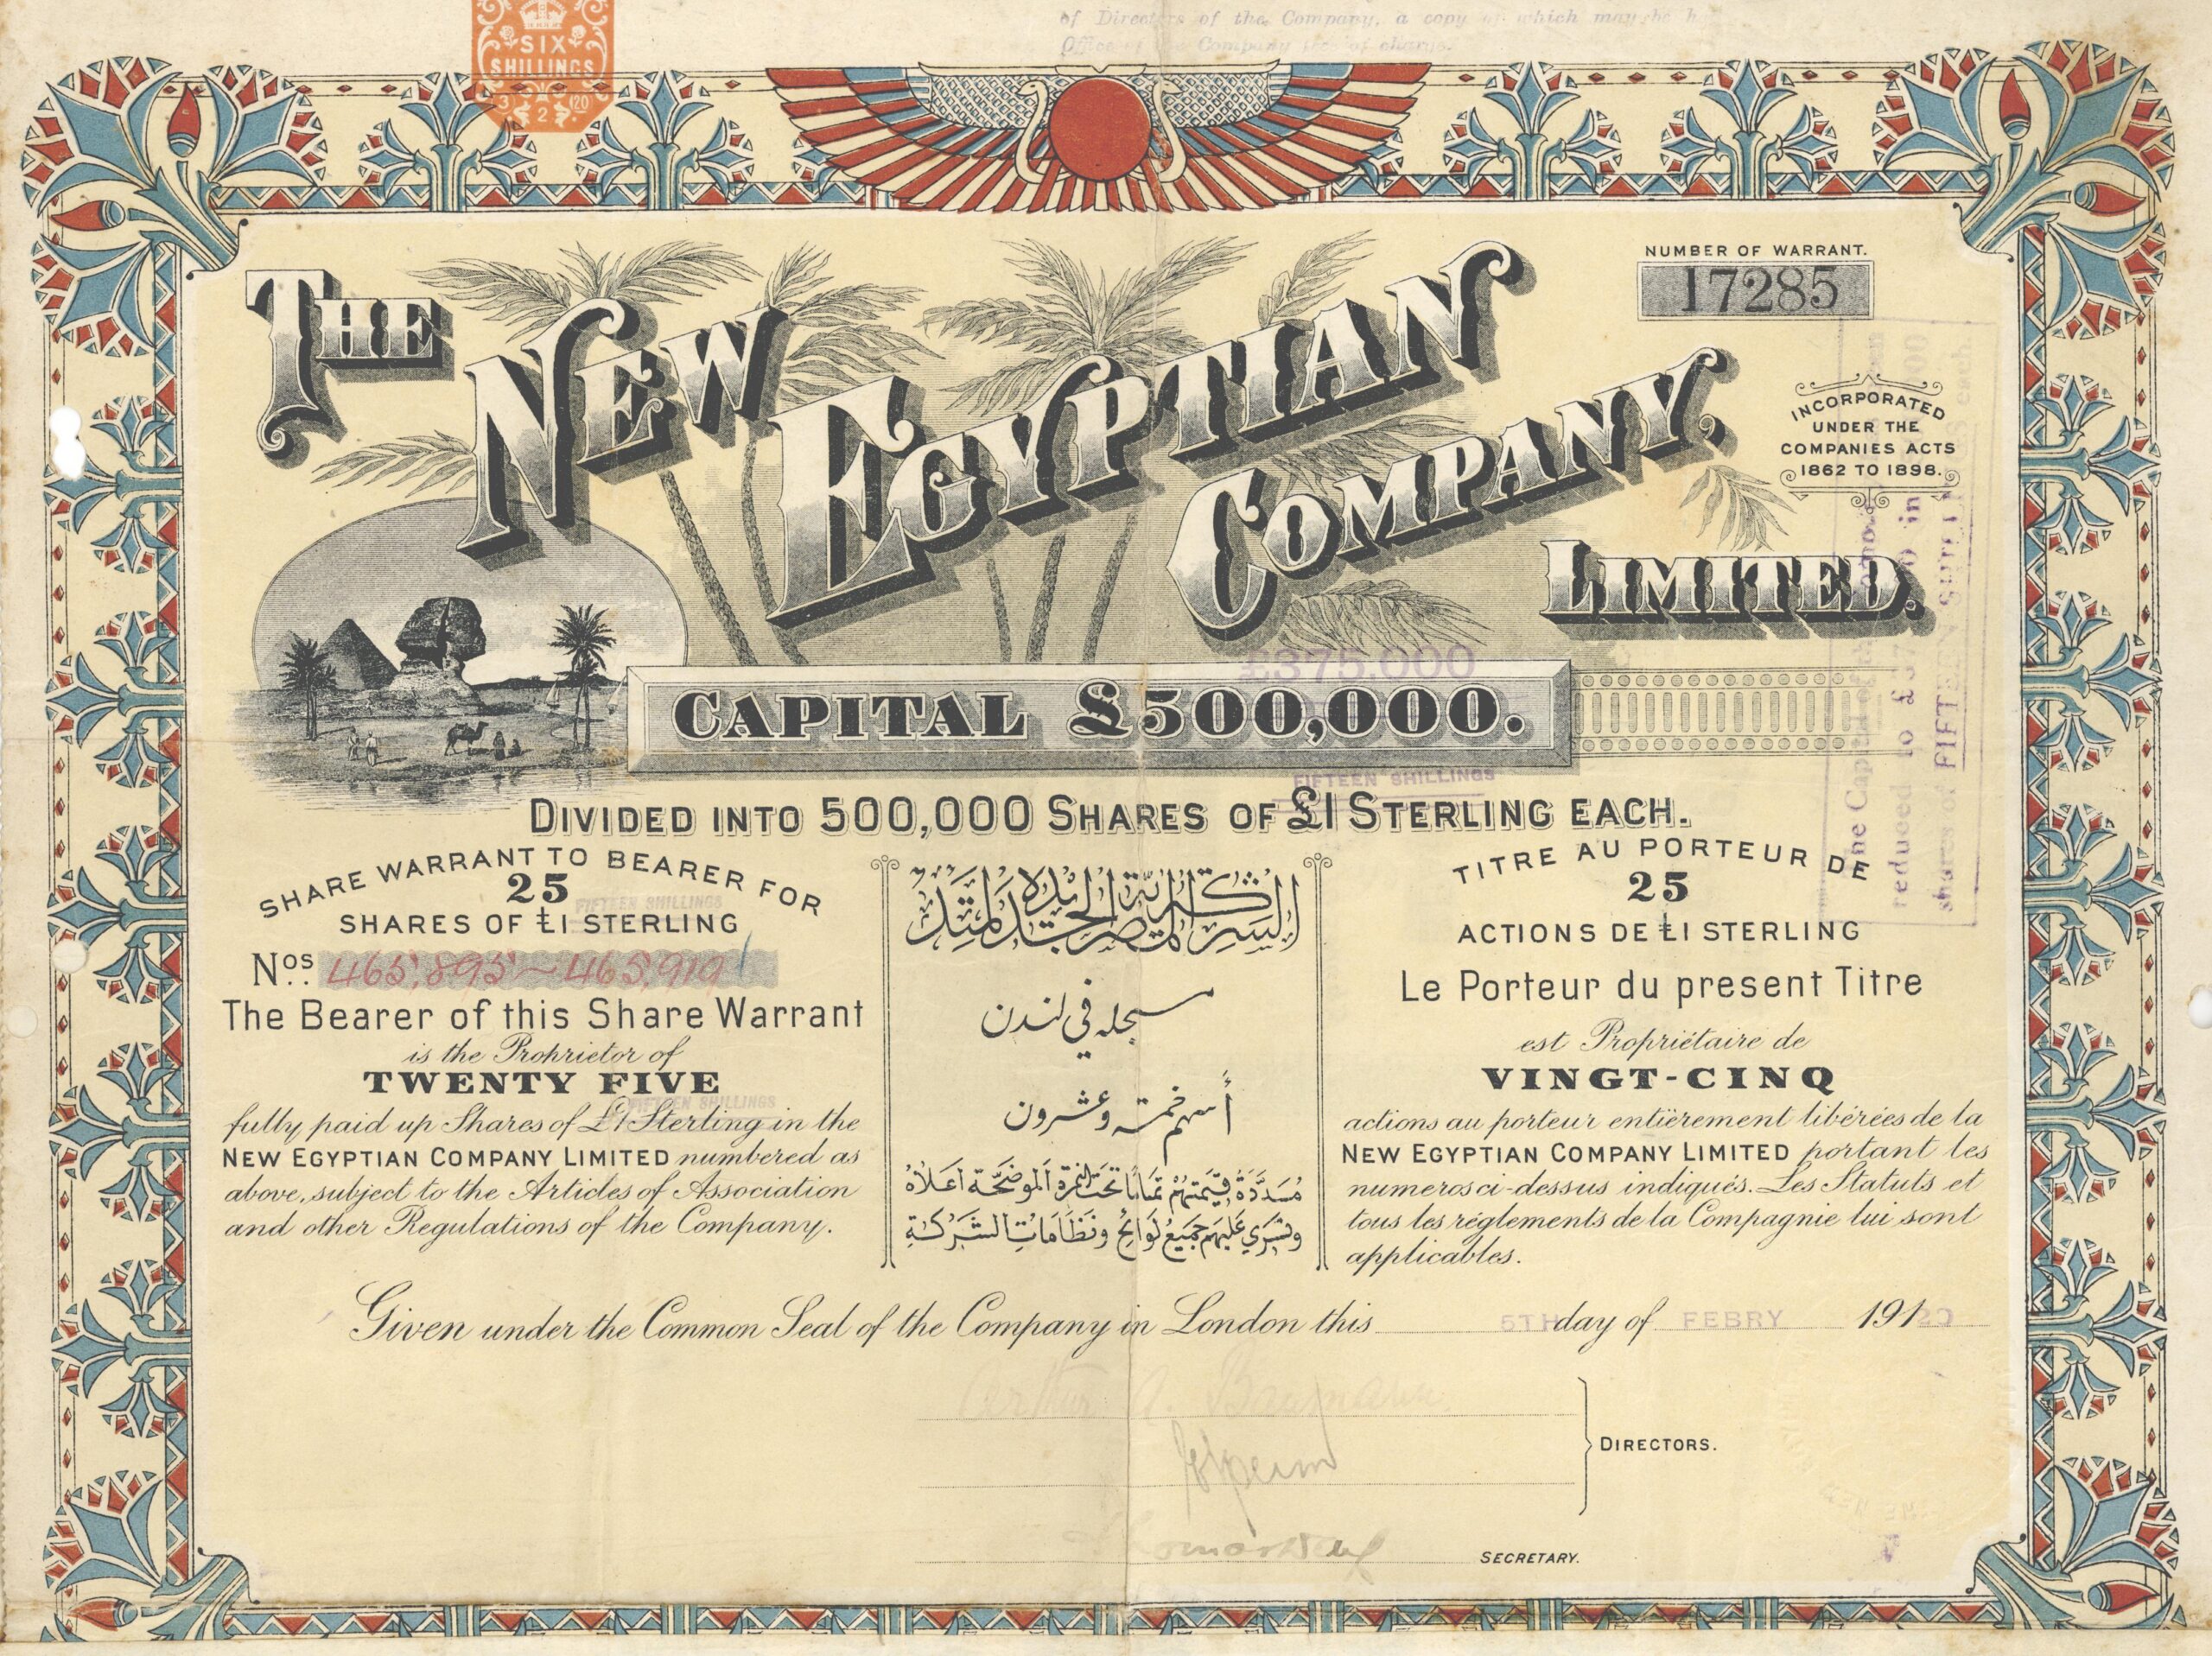 of Directors of the Company, a copy of which may be h
Office of the Company free of charge.
SIX
SHILLINGS
3 120
2
NUMBER OF WARRANT.
17285
THE
NEW
EGYPTIAN
COMPANY,
LIMITED.
INCORPORATED
UNDER THE
COMPANIES ACTS
1862 TO 1898.
£375.000
CAPITAL £500,000.
FIFTEEN SHILLINGS
DIVIDED INTO 500,000 SHARES OF £1 STERLING EACH.
he Capital of the
reduced to £ in
shares of FIFTEEN SHILLINGS each.
SHARE WARRANT TO BEARER FOR
25
FIFTEEN SHILLINGS
SHARES OF £1 STERLING
Nos. 465,895 ~ 465,919
The Bearer of this Share Warrant
is the Proprietor of
TWENTY FIVE
FIFTEEN SHILLINGS
fully paid up Shares of £1 Sterling in the
NEW EGYPTIAN COMPANY LIMITED numbered as
above, subject to the Articles of Association
and other Regulations of the Company.
الشركة المصرية الجديدة لمتد
مسجله في لندن
أسهم خمسة وعشرون
مُسَدَّدَةٌ قِيمَتُهُمْ تَمَامًا تَحْتَ النمْرَة المُوضَّحَة أَعْلَاهُ
وتسْرَي عَلَيْهِم جَمِيعُ لَوَائحُ ونظَامَات الشَّرْكَةِ
TITRE AU PORTEUR DE
25
ACTIONS DE £1 STERLING
Le Porteur du present Titre
est Propriétaire de
VINGT-CINQ
actions au porteur entièrement libérées de la
NEW EGYPTIAN COMPANY LIMITED portant les
numeros ci-dessus indiqués. Les Statuts et
tous les réglements de la Compagnie lui sont
applicables.
Given under the Common Seal of the Company in London this 5TH day of FEBRY 19120
Arthur A. Baumann
DIRECTORS.
SECRETARY.